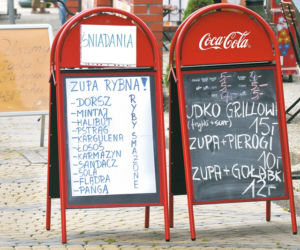 ŚNIADANIA
ZUPA RYBNA!
- DORSZ
- MINTAJ
- HALIBUT
- PSTRĄG
- KARGULENA
- ŁOSOŚ
- KARMAZYN
- SANDACZ
- SOLA
- FLĄDRA
- PANGA
RYBY SMAŻONE
Coca-Cola
UDKO GRILLOW
(frytki + sur)
15,-
ZUPA + PIEROGI
10,-
ZUPA + GOŁĄBK
12,-